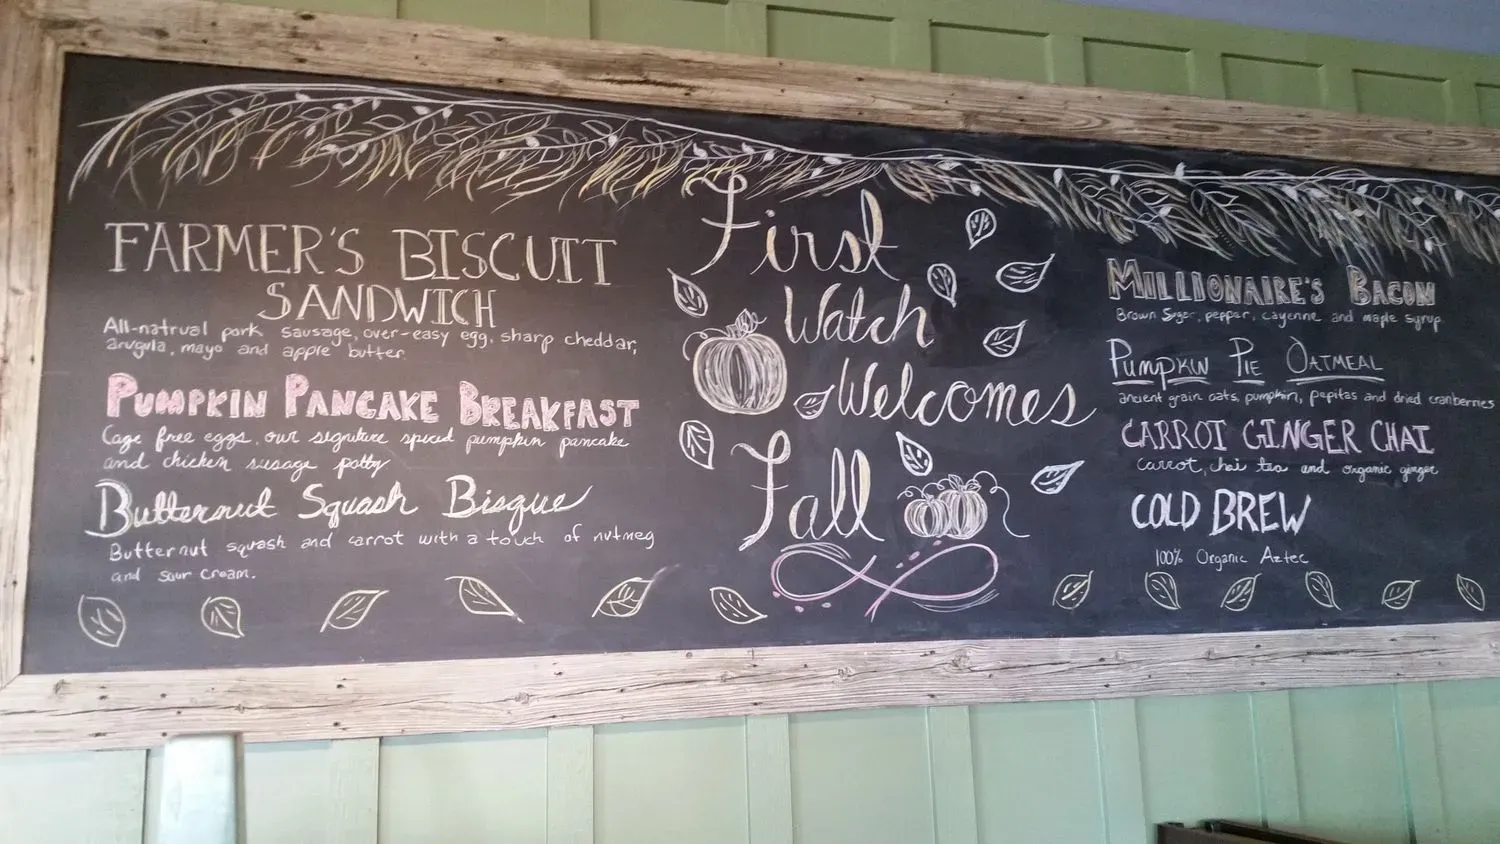 FARMER'S BISCUIT
SANDWICH
All-natrual pork sausage, over-easy egg, sharp cheddar,
arugula, mayo and apple butter.
PUMPKIN PANCAKE BREAKFAST
Cage free eggs, our signature spiced pumpkin pancake
and chicken susage patty
Butternut Squash Bisque
Butternut squash and carrot with a touch of nutmeg
and sour cream.
First
Watch
Welcomes
Fall
MILLIONAIRE'S BACON
Brown Sugar, pepper, cayenne and maple syrup
PUMPKIN PIE OATMEAL
ancient grain oats, pumpkin, pepitas and dried cranberries
CARROT GINGER CHAI
carrot, chai tea and organic ginger
COLD BREW
100% Organic Aztec